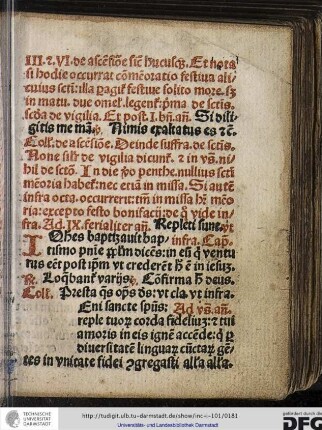 III.⁊.VI. de ascẽsiõe sic̃ hucusq̧. Et nota
si hodie occurrat cõmẽoratio festiua ali⸗
cuius scti: illa pagit̃ festiue solito more. sz
in matu. due omel. legent̃. pma de sctis.
scda de vigilia. Et post .I. bñ. añ. Si dili⸗
gitis me mã. Nimis exaltatus es ⁊c̃.
Coll. de ascẽsiõe. Deinde suffra. de sctis.
None sill̃ de vigilia dicunt̃. ⁊ in vs. ni⸗
hil de sctõ. In die penthe. nullius scti
mẽoria habet̃: nec etiã in missa. Si autẽ
infra octa. occurrerit: tm̃ in missa hz mẽo
ria: excepto festo bonifacij: de q̃ vide in⸗
fra. Ad .IX. ferialiter añ. Repleti sunt.
Iohes baptizauit bap⸗ infra. Cap.
tismo pnĩe plm̃ dicẽs: in eũ q̃ ventu
rus eẽt post ipm̃ vt crederẽt h̃ ẽ in iesuz.
R. Loq̃bant̃ varijs. Cõfirma h̃ deus.
Coll. Presta q̃s ops ds: vt cla. vt infra.
Eni sancte spũs: Ad vs. añ.
reple tuoꝝ corda fideliuz: ⁊ tui
amoris in eis ignẽ accẽde: q̃ p
diuersitatẽ linguaꝝ cũctaꝝ gẽ⸗
tes in vnitate fidei ɔgregasti alla. alla.
TECHNISCHE
UNIVERSITÄT
DARMSTADT
http://tudigit.ulb.tu-darmstadt.de/show/inc-i-101/0181
Universitäts- und Landesbibliothek Darmstadt
gefördert durch die
DFG